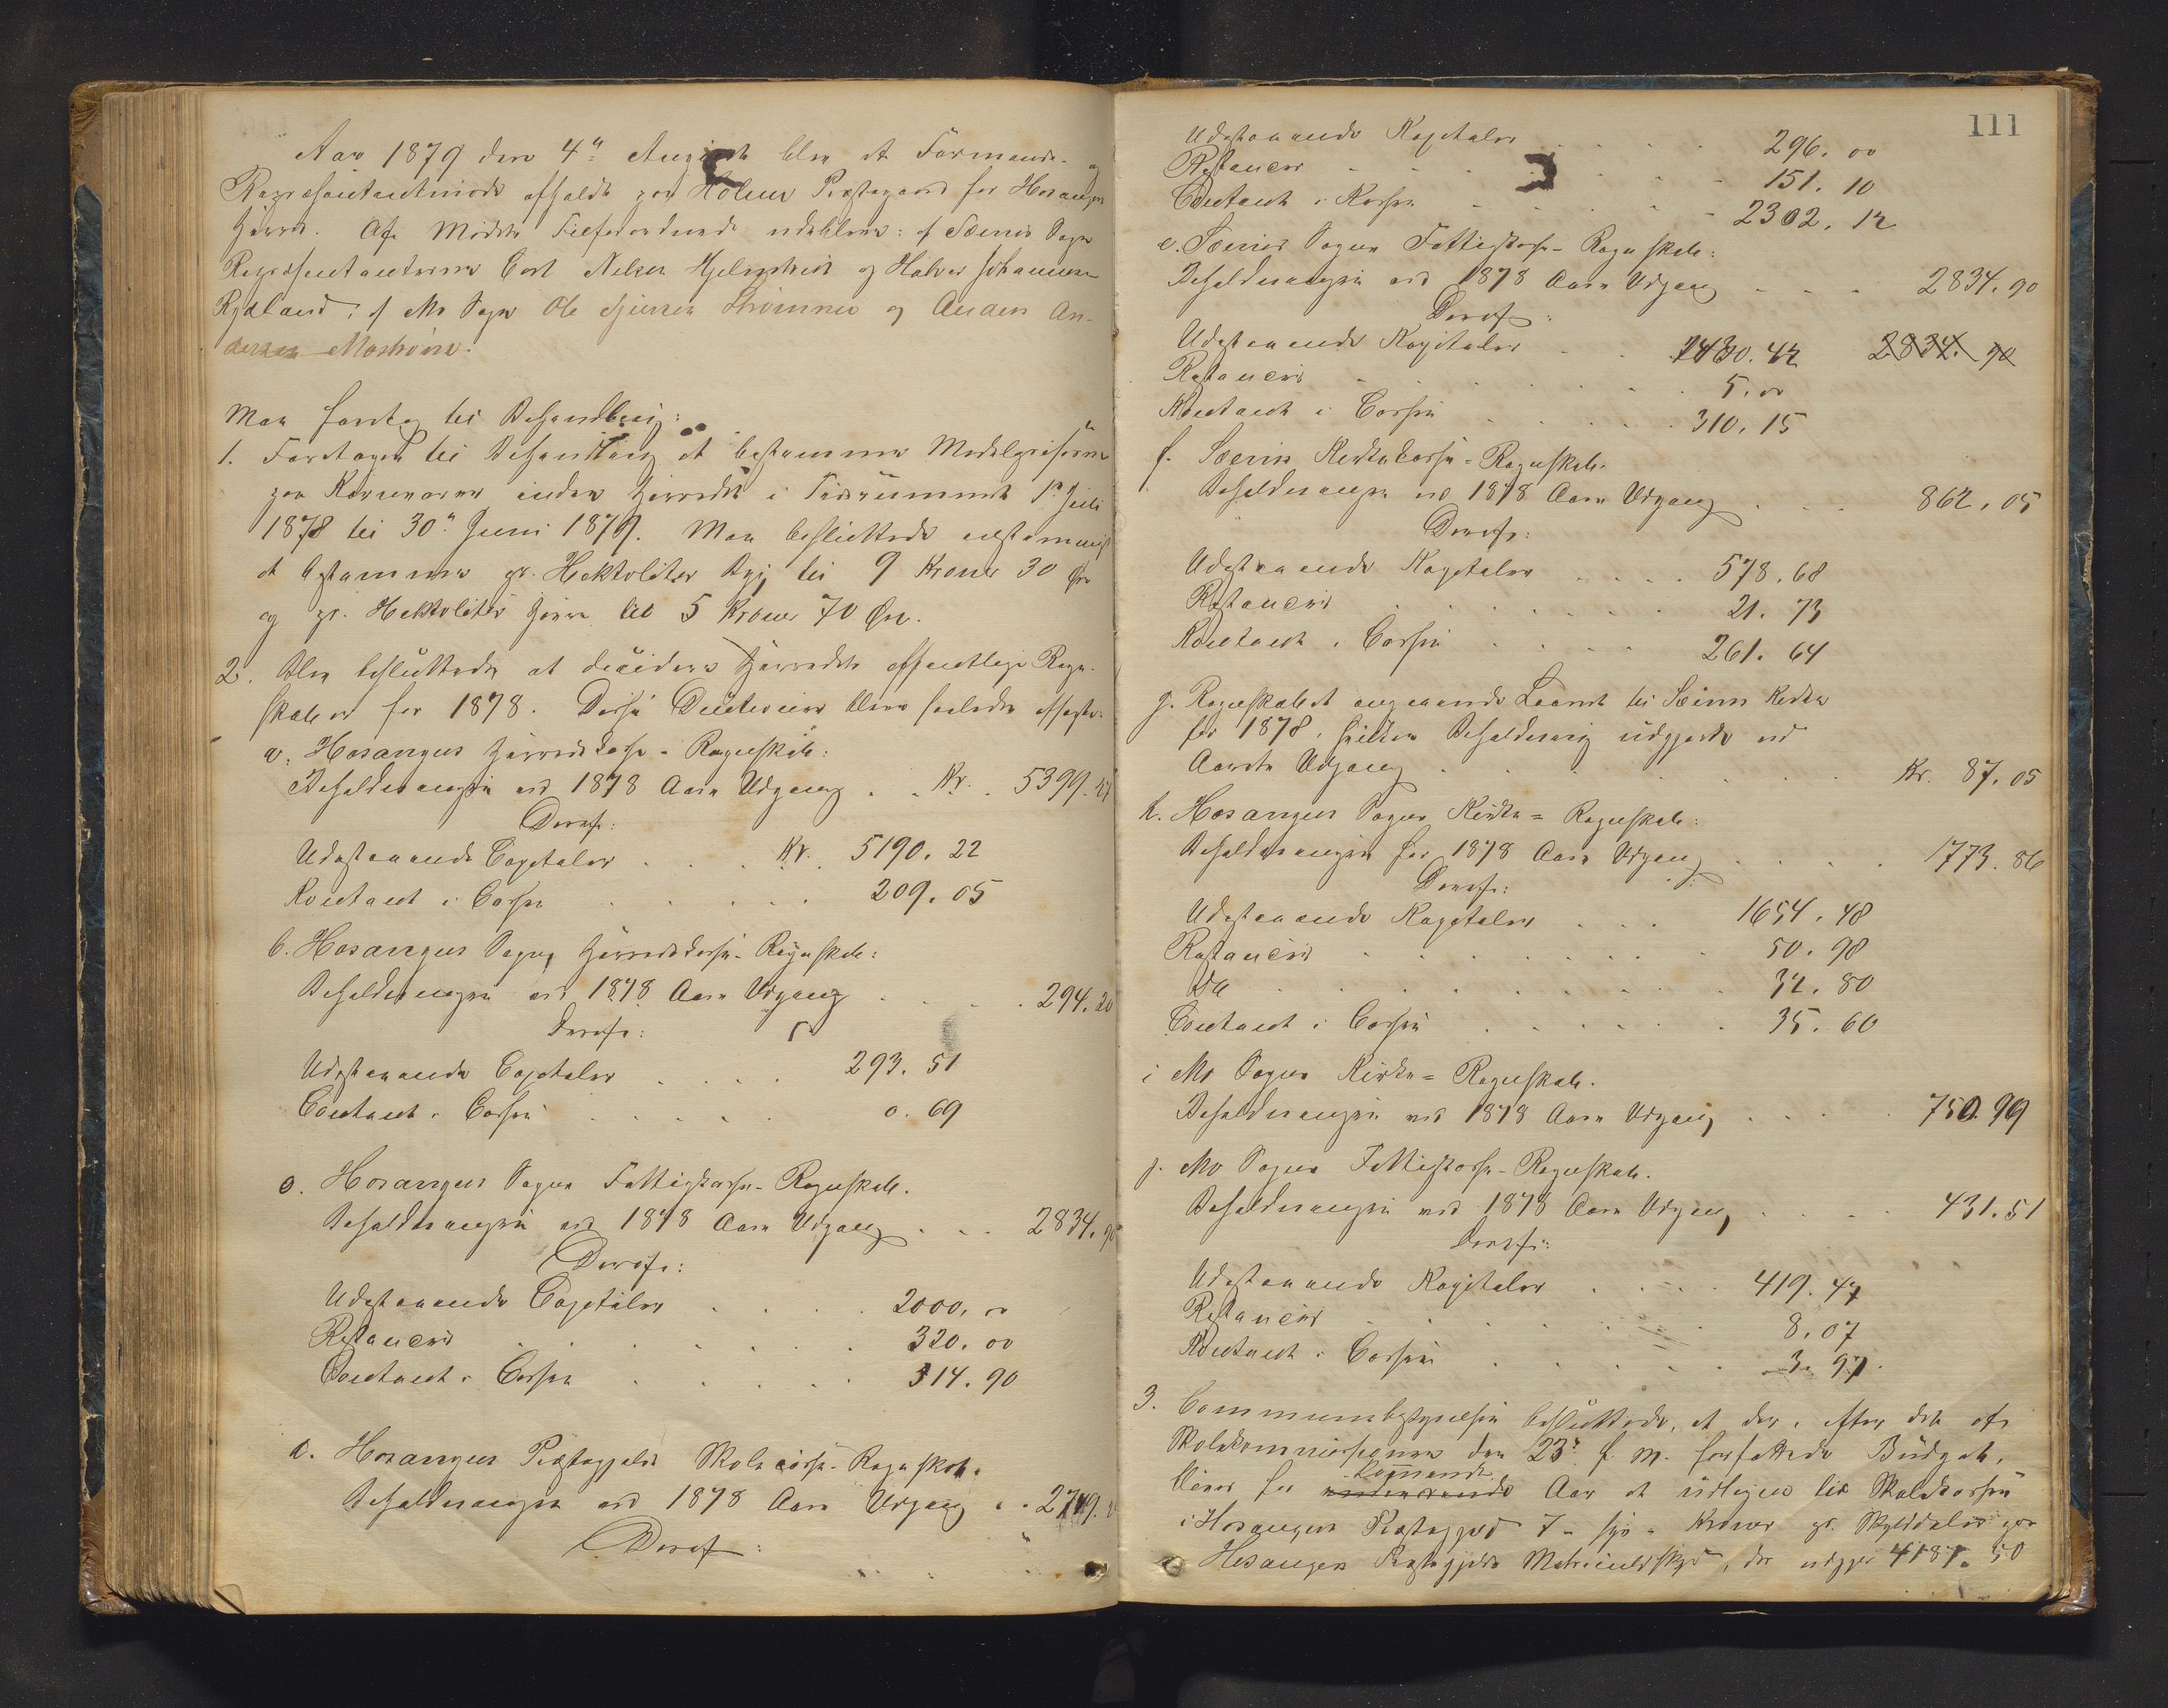 Aar 1879 den 4de August blev et Formands- og
Repræsentantmøde afholdt paa Holum Præstegaard for Hosanger
Herred. Af Mødets Tilforordnede udebleve: af Sæims Sogn
Repræsentanterne Carl Nilsen Hjelmtveit og Halvor Johannesen
Rydland; af Mo Sogn Ole Strømme og Anders An-
dersen
Man foretog til Behandling:
1. Foretagen til Behandling at bestemme Middelpriserne
paa Kornvarer inden Herredet i Tidsrummet 1ste Juli
1878 til 30te Juni 1879. Man besluttede eenstemmigt
at bestemme pr. Hektoliter Byg til 9 Kroner 30 Øre
og pr. Hektoliter Havre til 5 Kroner 70 Øre.
2. Blev besluttet at decidere Herredets offentlige Regn-
skaber for 1878. Disse Decisioner blev saaledes affattet:
a. Hosangers Herredskasse-Regnskab:
Beholdningen ved 1878 Aars Udgang . . Kr. 5399.27
Deraf:
Udestaaende Capitaler . . . Kr. 5190. 22
Kontant i Cassen . . . . . 209. 05
b. Hosangers Sogns Herredskasse-Regnskab:
Beholdningen ved 1878 Aars Udgang . . . . 294.20
Deraf:
Udestaaende Capitaler . . . . 293. 51
Contant i Cassen . . . . . 0. 69
c. Hosangers Sogns Fattigkasse-Regnskab.
Beholdningen ved 1878 Aars Udgang . . . 2834.90
Deraf:
Udestaaende Capitaler . . . . 2000. 00
Restancer . . . . . . 320. 00
Contant i Cassen . . . . . 514. 90
d. Hosangers Præstegjelds Skolecasse-Regnskab.
Beholdningen ved 1878 Aars Udgang . . 2749.
Deraf:
111
Udestaaende Kapitaler . . . . 296. 00
Restancer . . . . . . 151. 10
Contant i Kassen . . . . . 2302. 12
e. Sæims Sogns Fattigkasse-Regnskab:
Beholdningen ved 1878 Aars Udgang . . . 2834. 90
Deraf:
Udestaaende Kapitaler . . 2430. 42 2834. 90
Restancer . . . . . . 5. 00
Kontant i Cassen . . . . . 310. 15
f. Sæims Kirkekasse-Regnskab.
Beholdningen ved 1878 Aars Udgang . . . 862. 05
Deraf:
Udestaaende Kapitaler . . . . 578. 68
Restancer . . . . . . 21. 73
Kontant i Cassen . . . . 261. 64
g. Regnskabet angaaende Laanet til Sæims Kirke
for 1878, hvilken Beholdning udgjorde ved
Aarets Udgang . . . . . . . Kr. 87. 05
h. Hosangers Sogns Kirke-Regnskab:
Beholdningen for 1878 Aars Udgang . . . . 1773. 86
Deraf:
Udestaaende Kapitaler . . . 1654. 48
Restancer . . . . . . . 50. 98
Do . . . . . . . . 32. 80
Contant i Cassen . . . . . 35. 60
i Mo Sogns Kirke-Regnskab.
Beholdningen ved 1878 Aars Udgang . . . . 750. 99
j. Mo Sogns Fattigkasse-Regnskab.
Beholdningen ved 1878 Aars Udgang . . . . 431. 51
Deraf:
Udestaaende Kapitaler . . . . 419. 47
Restancer . . . . . . 8. 07
Kontant i Cassen . . . . . 3. 97.
3. Communebestyrelsen besluttede, at der, efter det af
Skolekommissionen den 23de f. M. forfattede Budget,
bliver for kommende Aar at udligne til Skolekassen
i Hosangers Præstegjeld 7 - syv - Kroner pr. Skylddaler paa
Hosangers Præstegjelds Matriculskyld, der udgjør 4187. 50